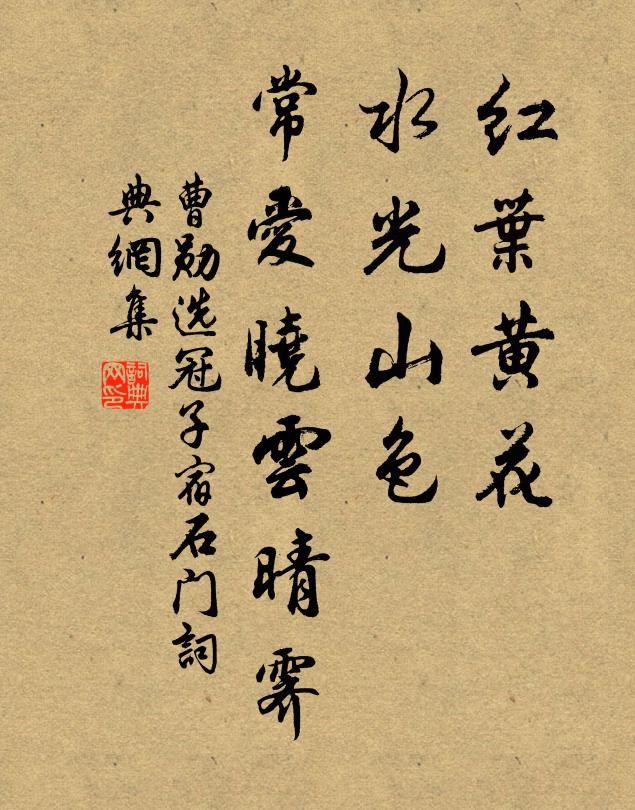 红葉黄花
水光山色
常愛曉雲晴霽
曹勋选冠子宿石门詞
典網集
詞典
网印